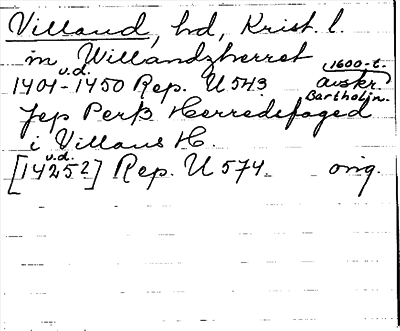 Villand, hd, Krist. l.
in Willandzherret
1401-1450 u.d. Rep. U 543 1600-t. avskr. Bartholin.
Jep Perß Herredsfaged
i Villans H.
[1425?] u.d. Rep. U 574 orig.